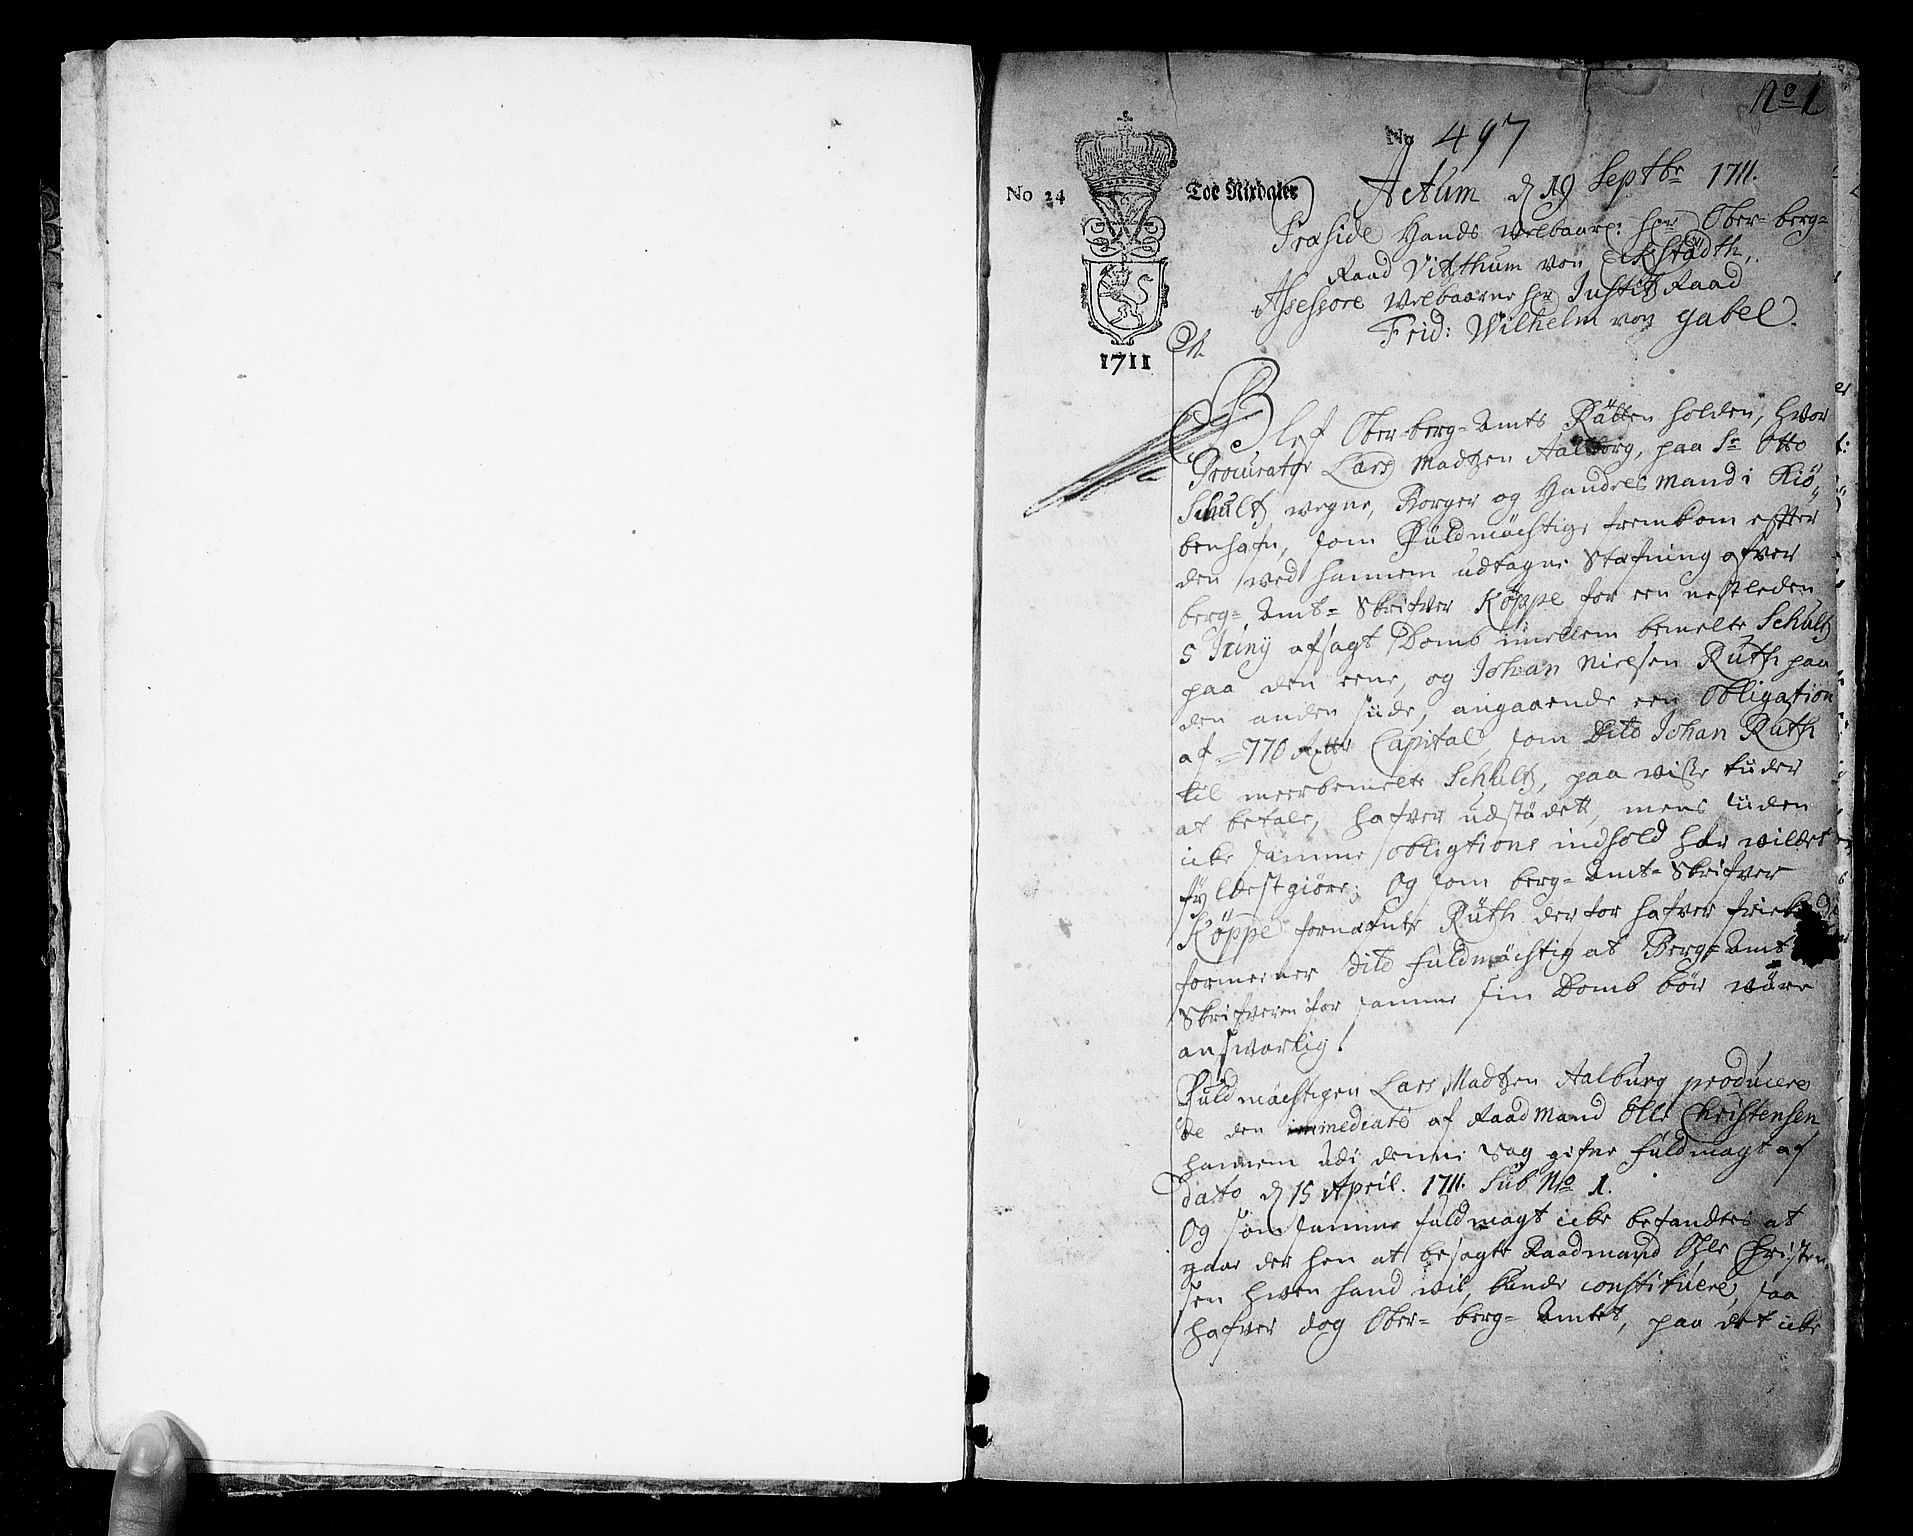 No 1
No 497
No 24
Toe Rixdaler
1711
Actum d 19 Septbr 1711.
Præside Hands Velbaarl: her Ober-berg-
Raad Vitzthum von Eckstädth,
Assessore Velbaarne her Justitz Raad
Frid: Wilhelm von Gabel.
Blef Ober-berg-Amts Rätten holden, hvor
Procurator Lars Madtzen Aalborg, paa Sr Otto
Schultz vegne, Borger og Handels mand i Kiö-
benhafn, som Fuldmächtige fremkom efter
den ved hannem udtagne Stefning ofver
berg-Amt-Skrifver Köppe for een nestleden
5 Juny afsagt Domb imellem bemelte Schultz
paa den eene, og Johan Nielsen Ruth paa
den anden siide, angaaende een Obligation
af =770 Rdlr Capital, som Dito Johan Ruth
til meerbemelte Schultz, paa visse tider
at betale, hafver udstädett, mens siiden
icke samme obligtions indhold har vildet
fyldestgiöre; Og som berg-Amt-Skrifver
Köppe fornæfnte Ruth derfor hafver frie kiendt
formeener dito fuldmächtig at Berg-Amt
Skrifveren for samme sin Domb bör väre
answarlig.
Fuldmächtigen Lars Madtzen Aalburg producere
de den immediate af Raadmand Olle Christensen
hannem udi denne Sag gifne fuldmagt af
dato d 15 April. 1711. Sub No 1.
Og som samme fuldmagt icke befandtes at
gaae der hen at besagte Raadmand Ohle Christen
sen hvem hand vil, kunde constituere, saa
hafver dog Ober-berg-Amtet, paa det icke